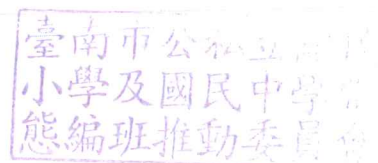 臺南市公私立高中
小學及國民中學常
態編班推動委員會